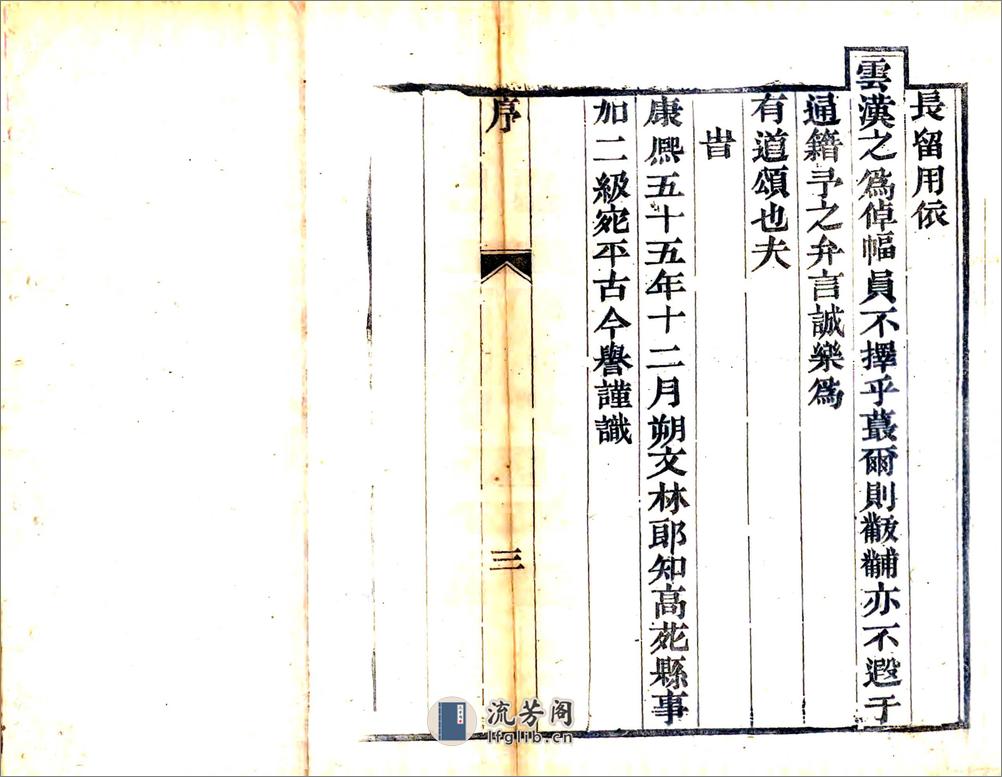 長留用依
雲漢之為倬幅員不擇乎蕞爾則黻黼亦不遐于
通籍予之弁言誠樂為
有道頌也夫
旹
康熙五十五年十二月朔文林郎知高苑縣事
加二級宛平古今譽謹識
序
三
流芳阁
lfglib.cn